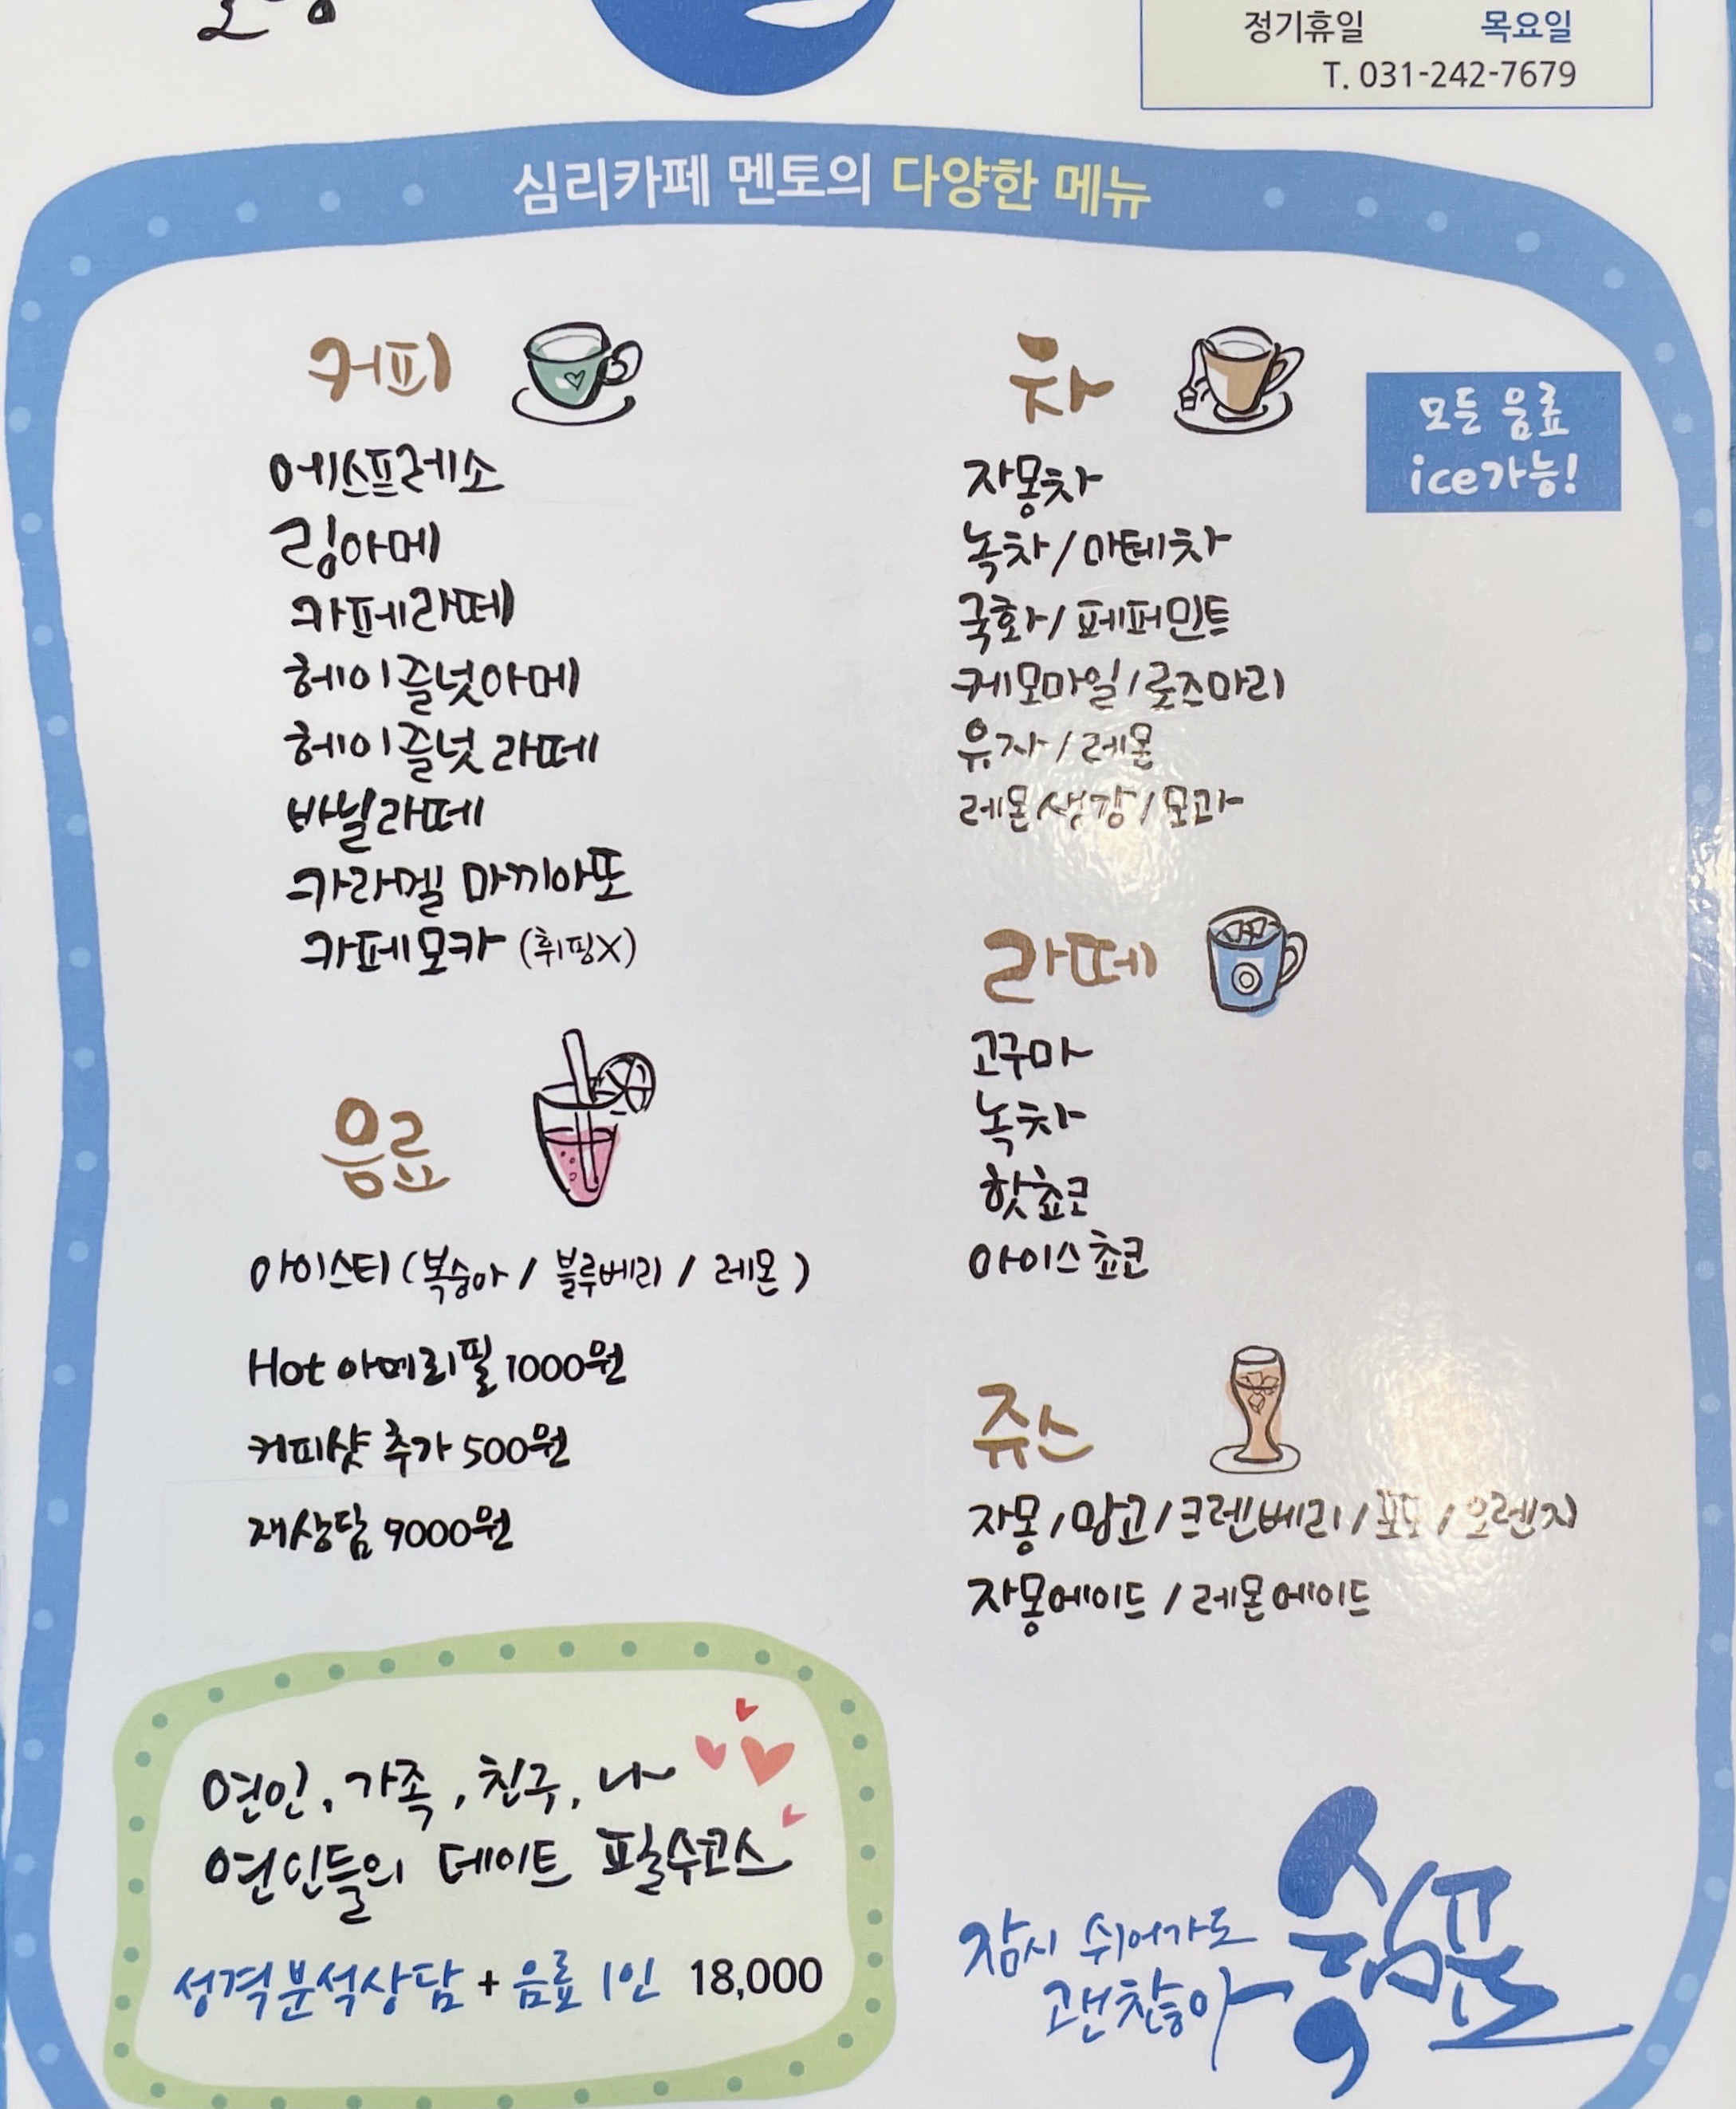 정기휴일 목요일
T. 031-242-7679
심리카페 멘토의 다양한 메뉴
커피
에스프레소
링아메
카페라떼
헤이즐넛아메
헤이즐넛 라떼
바닐라떼
카라멜 마끼아또
카페모카 (휘핑X)
음료
아이스티 (복숭아 / 블루베리 / 레몬)
Hot 아메리필 1000원
커피샷 추가 500원
재상담 9000원
차
모든 음료
ice가능!
자몽차
녹차/마테차
국화/페퍼민트
케모마일/로즈마리
유자/레몬
레몬생강/모과
라떼
고구마
녹차
핫쵸코
아이스쵸코
쥬스
자몽/망고/크렌베리/포도/오렌지
자몽에이드/레몬에이드
연인, 가족, 친구, 나
연인들의 데이트 필수코스
성격분석상담 + 음료 1인 18,000
잠시 쉬어가도
괜찮아
쉼표